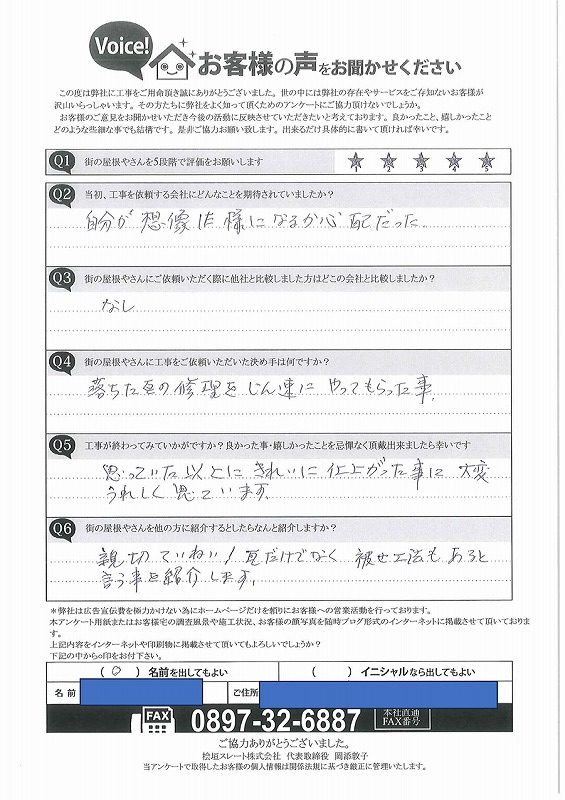 Voice!
お客様の声をお聞かせください
この度は弊社に工事をご用命頂き誠にありがとうございました。世の中には弊社の存在やサービスをご存知ないお客様が
沢山いらっしゃいます。その方たちに弊社をよく知って頂くためのアンケートにご協力頂けないでしょうか。
お客様のご意見をお聞かせいただき今後の活動に反映させていただきたいと考えております。良かったこと、嬉しかったこと
どのような些細な事でも結構です。是非ご協力お願い致します。出来るだけ具体的に書いて頂ければ幸いです。
Q1 街の屋根やさんを5段階で評価をお願いします
1 2 3 4 5
Q2 当初、工事を依頼する会社にどんなことを期待されていましたか？
自分が想像した様になるか心配だった
Q3 街の屋根やさんにご依頼いただく際に他社と比較しました方はどこの会社と比較しましたか？
なし
Q4 街の屋根やさんに工事をご依頼いただいた決め手は何ですか？
落ちた瓦の修理をじん速にやってもらった事.
Q5 工事が終わってみていかがですか？良かった事・嬉しかったことを忌憚なく頂戴出来ましたら幸いです
思っていた以上にきれいに仕上がった事に大変
うれしく思っています.
Q6 街の屋根やさんを他の方に紹介するとしたらなんと紹介しますか？
親切ていねい！瓦だけでなく 被せ工法もあると
言う事を紹介します.
＊弊社は広告宣伝費を極力かけない為にホームページだけを頼りにお客様への営業活動を行っております。
本アンケート用紙またはお客様宅の調査風景や施工状況、お客様の顔写真を随時ブログ形式のインターネットに掲載させて頂いております。
上記内容をインターネットや印刷物に掲載させて頂いてもよろしいでしょうか？
下記の中から○印をお付下さい。
（ ○ ） 名前を出してもよい （ ） イニシャルなら出してもよい
名 前 ご住所
FAX 0897-32-6887 本社直通 FAX番号
ご協力ありがとうございました。
桧垣スレート株式会社 代表取締役 岡添敦子
当アンケートで取得したお客様の個人情報は関係法規に基づき厳正に管理いたします。